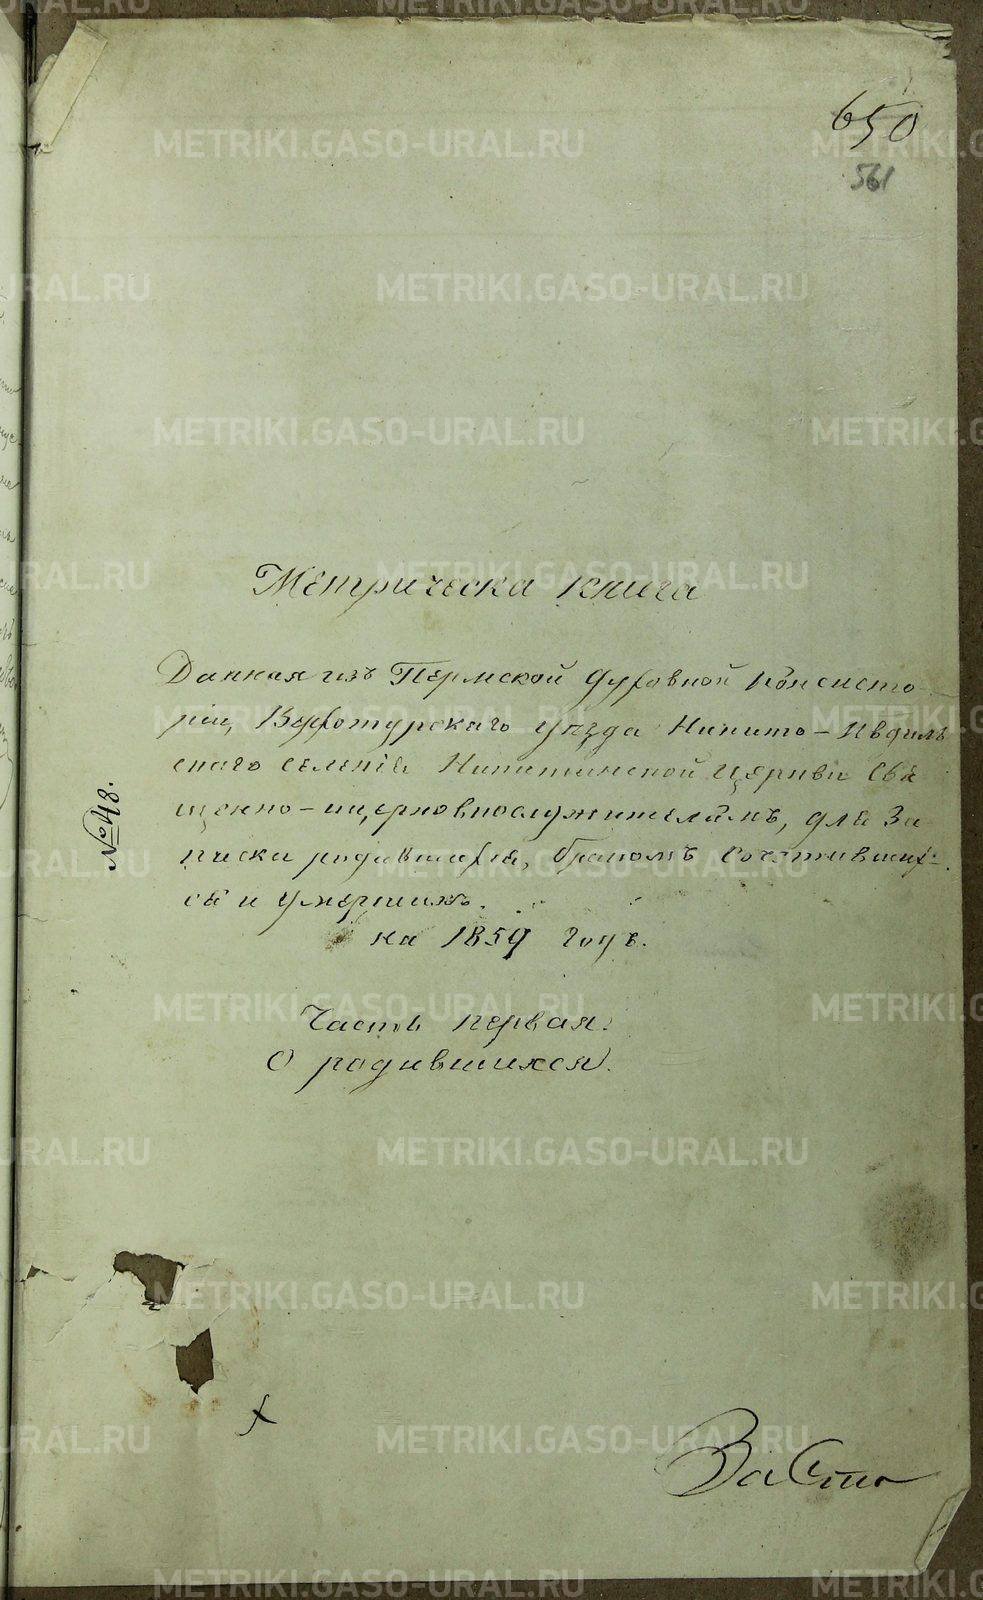 650
561
Метрическа книга
Данная изъ Пермской духовной Консисто-
ріи, Верхотурскаго уѣзда Никито-Ивдиль
скаго селенія Никитинской церкви Свя
щенно-ицерковнослужителямъ, для За
писки родившихся, бракомъ Сочетавших-
ся и умершихъ.
на 1859 годъ.
Часть первая.
О родившихся.
№ 48.
METRIKI.GASO-URAL.RU